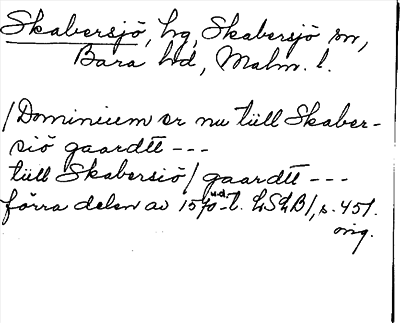 Skabersjö, hg, Skabersjö sn,
Bara hd, Malm. l.
/Dominium er nu tüll Skaber-
siö gaardtt ---
tüll Skabersiö/ gaardtt ---
förra delen av 1570-t. LSLB1, s. 451.
orig.